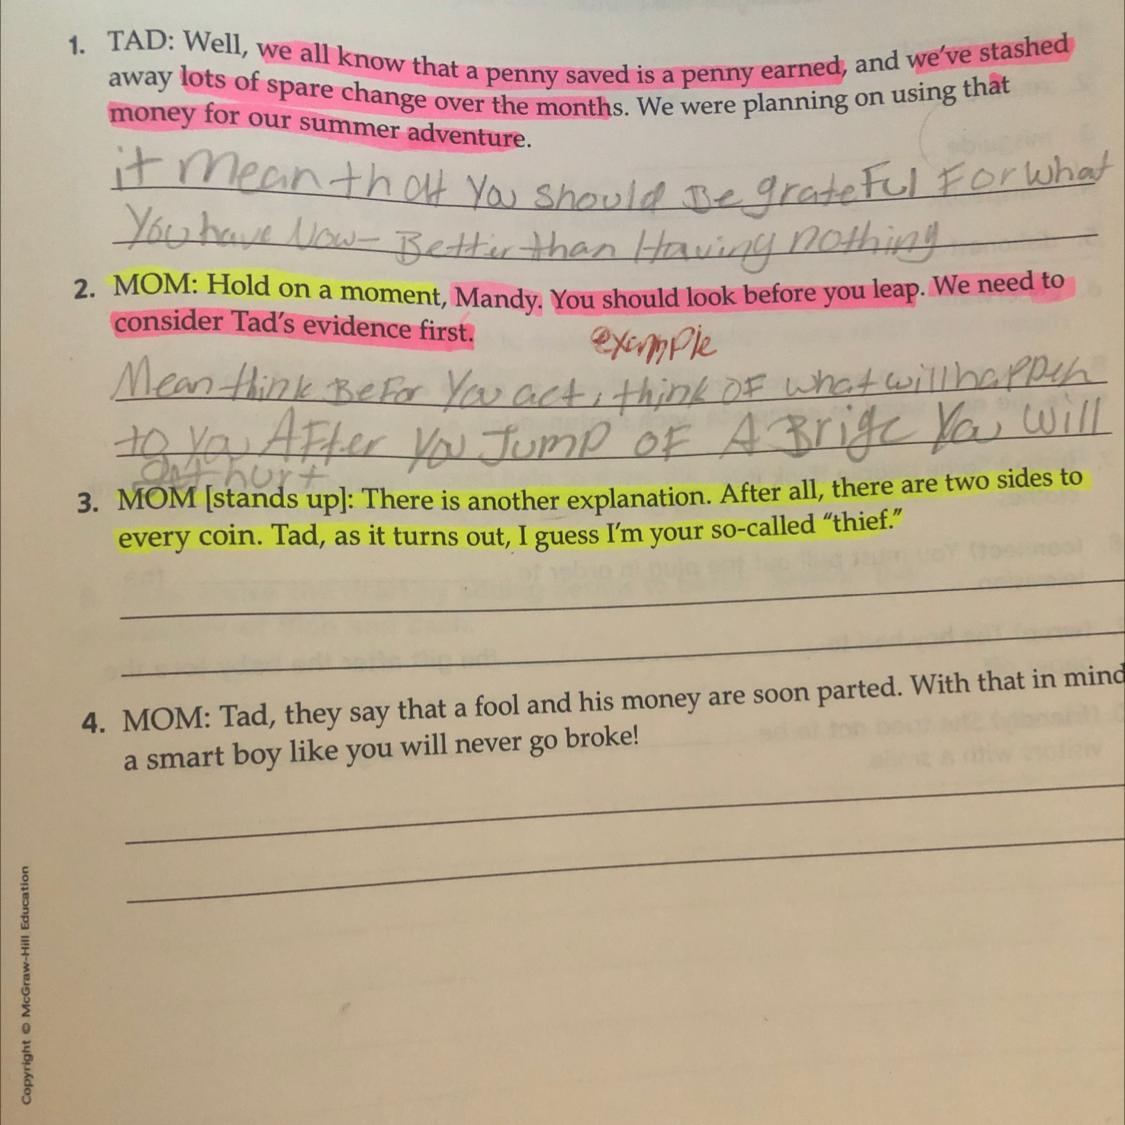 1. TAD: Well, we all know that a penny saved is a penny earned, and we've stashed
away lots of spare change over the months. We were planning on using that
money for our summer adventure.
it Mean that You should Be grateful For what
You have Now- Better than Having nothing
2. MOM: Hold on a moment, Mandy. You should look before you leap. We need to
consider Tad's evidence first.
example
Mean think Befor You act, think OF what will happen
to You AFter You Jump OF A Brige You will
get hurt
3. MOM [stands up]: There is another explanation. After all, there are two sides to
every coin. Tad, as it turns out, I guess I'm your so-called “thief.”
4. MOM: Tad, they say that a fool and his money are soon parted. With that in mind
a smart boy like you will never go broke!
Copyright © McGraw-Hill Education